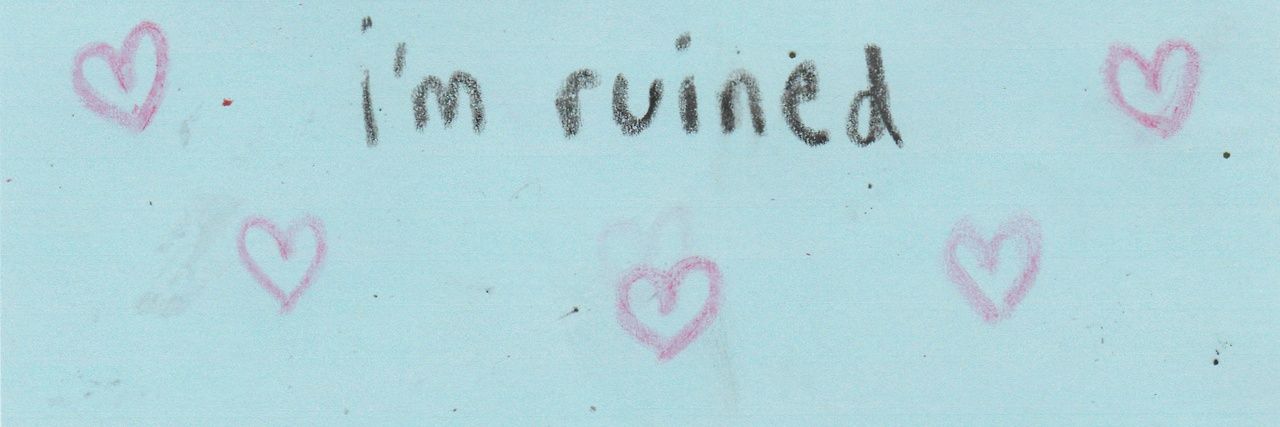 i'm ruined